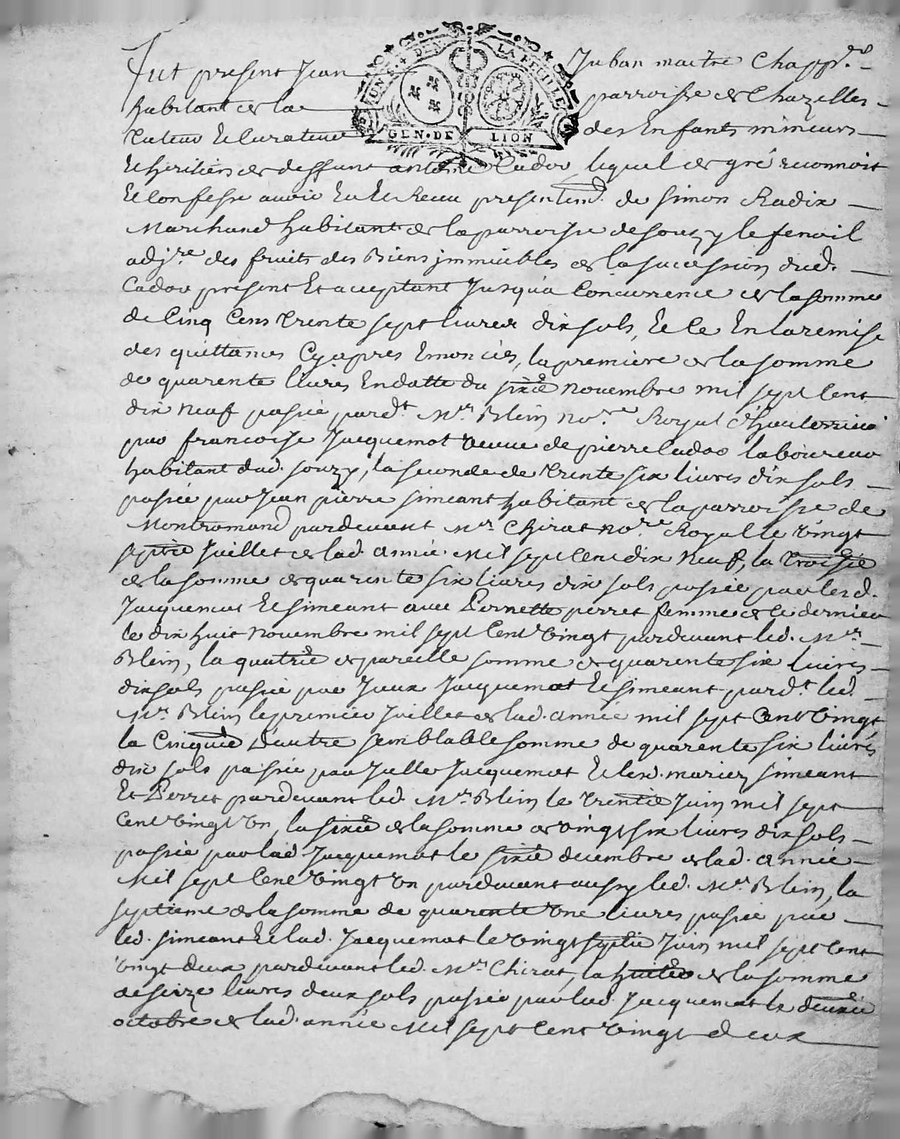 UN S 4 DEN LA FEUILLE
GEN · DE LION
Fut présent Jean Juban maitre Chapp.r
habitant de la parroisse de Chazelles
tuteur et curateur des Enfants mineurs
et heritiers de deffunt antoine Cadou lequel de gré reconnoit
et Confesse avoir Eu et Receu presentem.t de Simon Radix
Marchand habitant de la parroisse de Souzy le fenoil
adj.re des fruits des Biens immeubles de la succession dud.
Cadou présent Et acceptant Jusqu'a Concurrence de la somme
de Cinq Cens trente sept livres dix sols, Et Ce En la remise
des quittances Cyapres Enoncées, la premiere de la somme
de quarente livres En datte du sixie novembre mil sept Cent
dix neuf passée pard.t M.re Blein no.re Royal
par francoise Jacquemot veuve de pierre Cadou laboureur
habitant dud. Souzy, la seconde de trente six livres dix sols
passée par Jean pierre Simeant habitant de la parroisse de
Montromand pardevant M.re Chirat no.re Royal le vingt
septie Juillet de lad. année Mil sept Cent dix neuf, la troisie
de la somme de quarente six livres dix sols passée par les d.
Jacquemot et Simeant avec Pernette perret femme de ce dernier
le dix huit novembre mil sept Cent vingt pardevant led. M.re
Blein, la quatrie de pareille somme de quarente six livres
dix sols passée par Iceux Jacquemot et Simeant pard.t led.
M.re Blein le premier Juillet de lad. année mil sept Cent vingt
la Cinquie D'autre semblable somme de quarente six livres
dix sols passée par Icelle Jacquemot et les d. mariez Simeant
Et Perret pardevant led. M.re Blein le trentie Juin mil sept
Cent vingt Un, la sixie de la somme de vingt six livres dix sols
passée par lad. Jacquemot le sixie decembre de lad. année
Mil sept Cent vingt Un pardevant aussy led. M.re Blein, la
septieme de la somme de quarente Une livres passée par
led. Simeant et lad. Jacquemot le vingt septie Juin mil sept Cent
vingt deux pardevant led. M.re Chirat, la huitie de la somme
de seize livres deux sols passée par lad. Jacquemot le deuxie
octobre de lad. année Mil sept Cent vingt deux